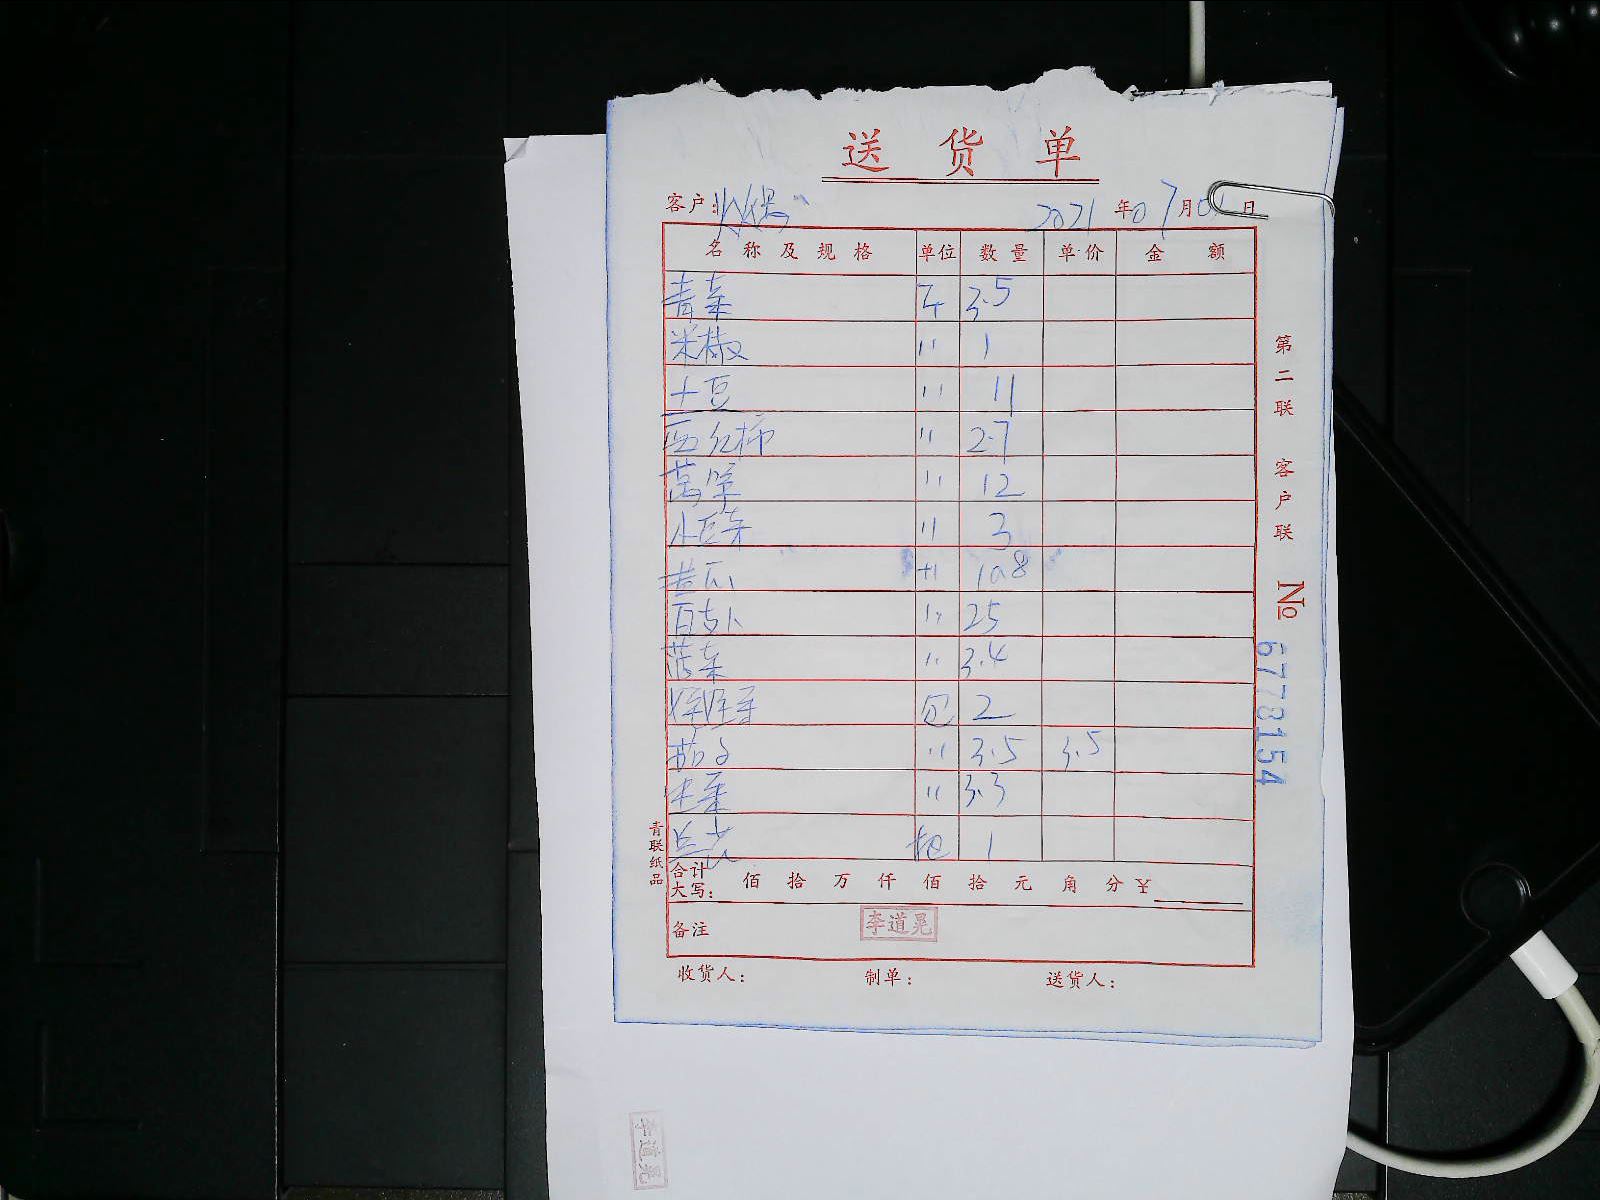 送 货 单
客户: 火锅 2021 年 07 月 01 日
名称及规格 单位 数量 单价 金额
青菜 斤 3.5
米椒 〃 1
土豆 〃 11
西红柿 〃 2.7
莴笋 〃 12
小白菜 〃 3
黄瓜 〃 10.8
白萝卜 〃 25
菠菜 〃 3.4
娃娃菜 包 2
茄子 〃 3.5 3.5
生菜 〃 3.3
包 1
合计
大写: 佰 拾 万 仟 佰 拾 元 角 分 ¥
备注 李道晃
收货人: 制单: 送货人:
第二联 客户联 № 6778154
青联纸品
李道晃